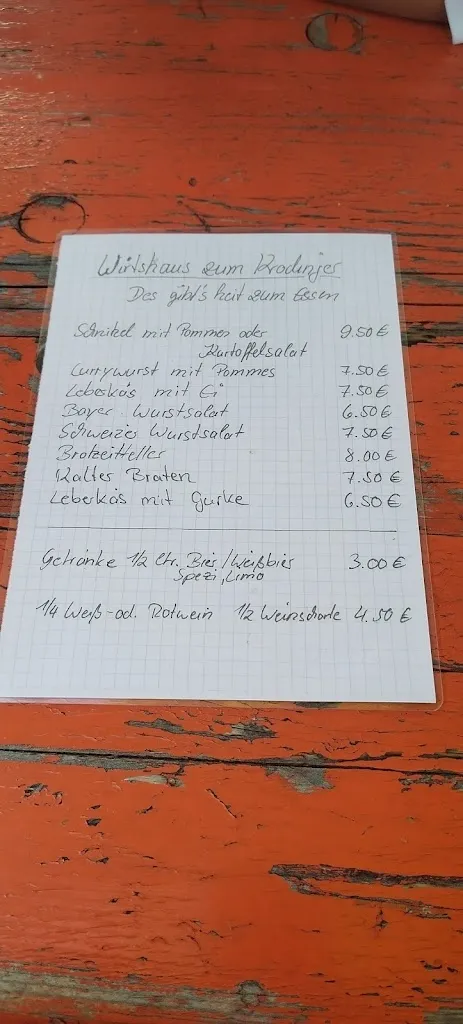 Wirtshaus zum Krodinjer
Des gibt's heit zum Essen
Schnitzel mit Pommes oder 9.50 €
Kartoffelsalat
Currywurst mit Pommes 7.50 €
Leberkäs mit Ei 7.50 €
Bayer. Wurstsalat 6.50 €
Schweizer Wurstsalat 7.50 €
Brotzeitteller 8.00 €
Kalter Braten 7.50 €
Leberkäs mit Gurke 6.50 €
Getränke 1/2 Ltr. Bier/Weißbier 3.00 €
Spezi, Limo
1/4 Weiß- od. Rotwein 1/2 Weinschorle 4.50 €